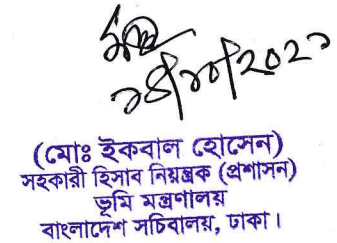 ১৪/১০/২০২১
(মোঃ ইকবাল হোসেন)
সহকারী হিসাব নিয়ন্ত্রক (প্রশাসন)
ভূমি মন্ত্রণালয়
বাংলাদেশ সচিবালয়, ঢাকা।